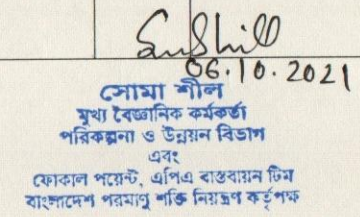 06.10.2021
সোমা শীল
মুখ্য বৈজ্ঞানিক কর্মকর্তা
পরিকল্পনা ও উন্নয়ন বিভাগ
এবং
ফোকাল পয়েন্ট, এপিএ বাস্তবায়ন টিম
বাংলাদেশ পরমাণু শক্তি নিয়ন্ত্রণ কর্তৃপক্ষ